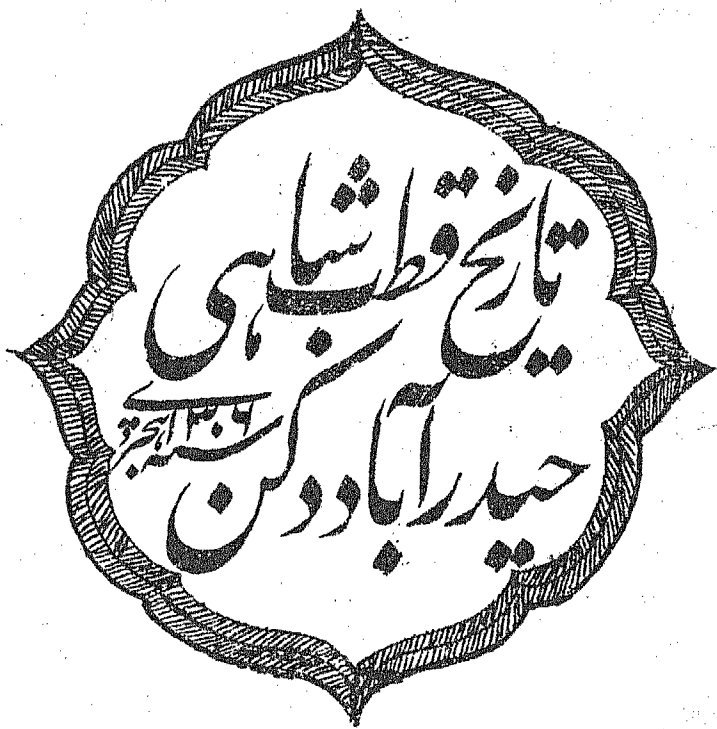 تاریخ قطب شاہی
حیدرآباد دکن
سنہ ۱۳۰۶ ہجری